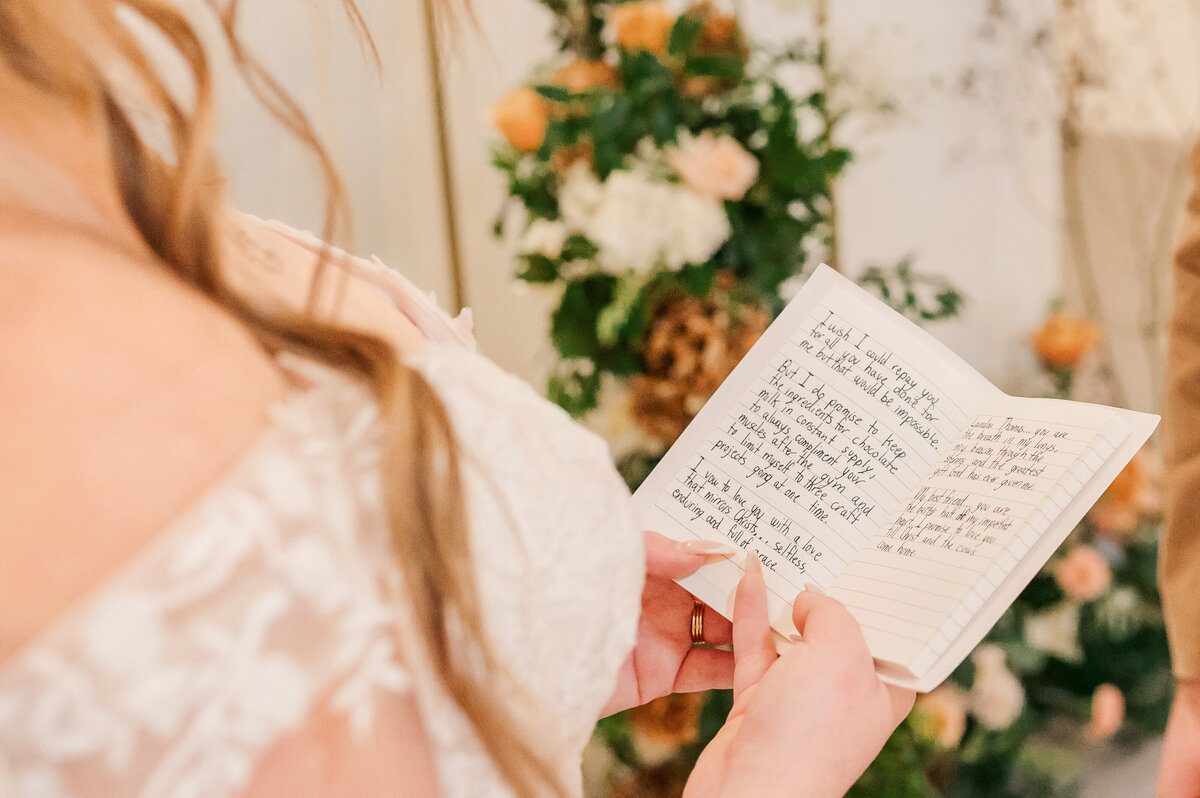 I wish I could repay you
for all you have done for
me but that would be impossible.
But I do promise to keep
the ingredients for chocolate
milk in constant supply,
to always compliment your
muscles after the gym and
to limit myself to three craft
projects going at one time.
I vow to love you with a love
that mirrors Christs... selfless,
enduring and full of grace.
Thomas... you are
the breath in my lungs,
my
and the greatest
gift God has ever given me.
My best friend... you are
the better half of my imperfect
heart. I promise to love you
till Christ and the
come home